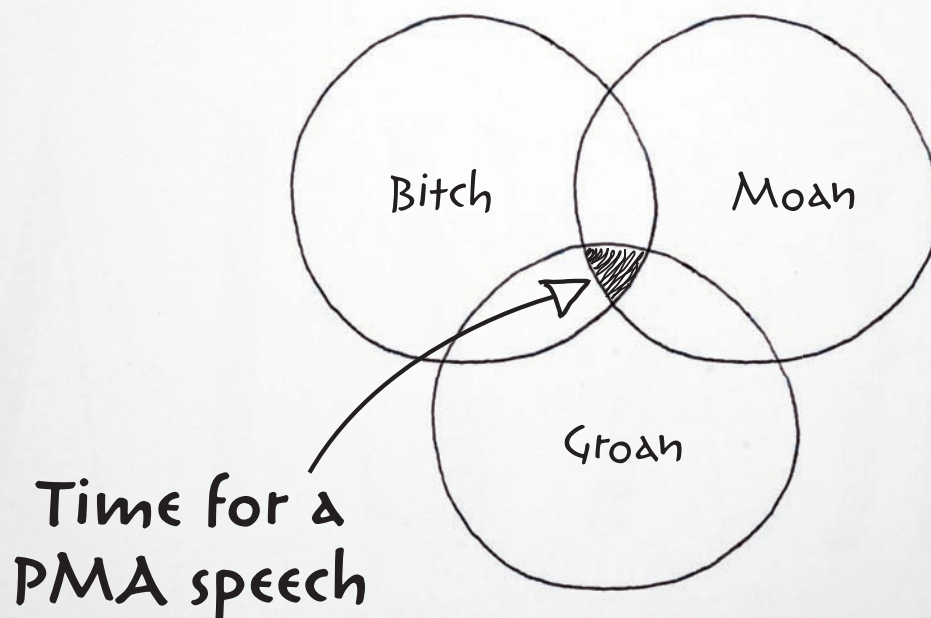 Bitch
Moan
Groan
Time for a
PMA speech